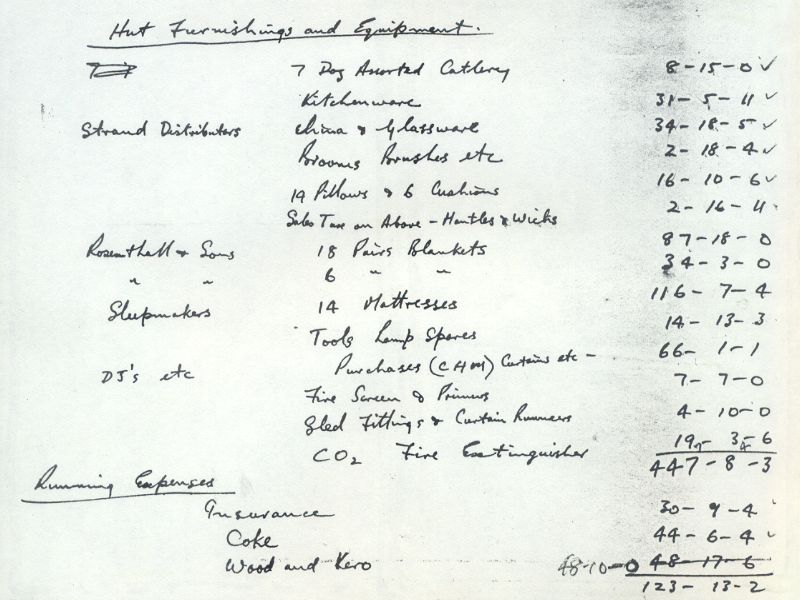 Hut Furnishings and Equipment.
7 Doz Assorted Cutlery 8-15-0 ✓
Kitchenware 31-5-11 ✓
Strand Distributors China & Glassware 34-18-5 ✓
Brooms Brushes etc 2-18-4 ✓
19 Pillows & 6 Cushions 16-10-6 ✓
Sales Tax on Above - Mantles & Wicks 2-16-11
Rosenthall & Sons 18 Pairs Blankets 87-18-0
" " 6 " " 34-3-0
Sleepmakers 14 Mattresses 116-7-4
Tools Lamp Spares 14-13-3
DJ's etc Purchases (CHM) Curtains etc - 66-1-1
Fire Screen & Primus 7-7-0
Fittings & Curtain Runners 4-10-0
CO2 Fire Extinguisher 19-3-6
447-8-3
Running Expenses
Insurance 30-9-4
Coke 44-6-4 ✓
Wood and Kero 48-10-0 48-17-6
123-13-2